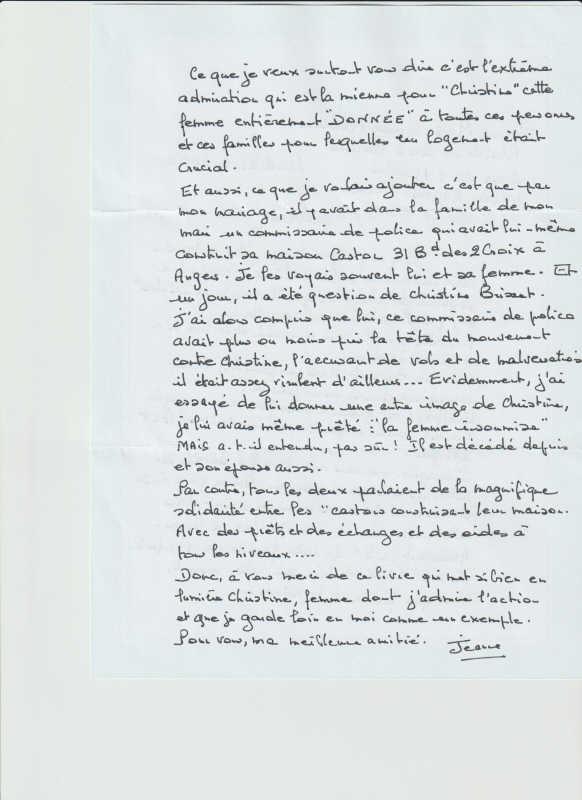 Ce que je veux surtout vous dire c'est l'extrême
admiration qui est la mienne pour "Christine" cette
femme entièrement "DONNÉE" à toutes ces personnes
et ces familles pour lesquelles un logement était
crucial.
Et aussi, ce que je voulais ajouter c'est que par
mon mariage, il y avait dans la famille de mon
mari un commissaire de police qui avait lui-même
construit sa maison Castor 31 Bd des 2 Croix à
Angers. Je les voyais souvent lui et sa femme. Et
un jour, il a été question de Christine Brisset.
J'ai alors compris que lui, ce commissaire de police
avait plus ou moins pris la tête du mouvement
contre Christine, l'accusant de vols et de malversations
il était assez virulent d'ailleurs... Evidemment, j'ai
essayé de lui donner une autre image de Christine,
je lui avais même prêté : "la femme insoumise"
MAIS a.t.il entendu, pas sûr ! Il est décédé depuis
et son épouse aussi.
Par contre, tous les deux parlaient de la magnifique
solidarité entre les "castors construisant leur maison.
Avec des prêts et des échanges et des aides à
tous les niveaux....
Donc, à vous merci de ce livre qui met si bien en
lumière Christine, femme dont j'admire l'action
et que je garde loin en moi comme un exemple.
Pour vous, ma meilleure amitié. Jeanne